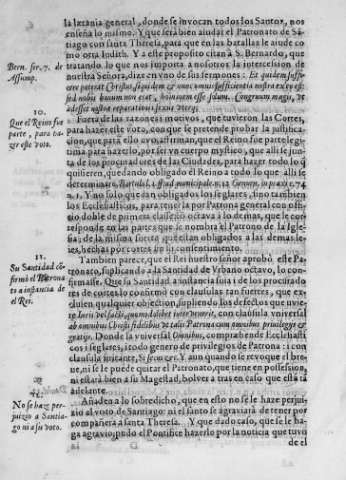 la letania general, donde se invocan todos los Santos, nos
enseña lo mismo. Y que será bien ayudar el Patronato de Sã-
tiago con santa Theresa, para que en las batallas le ayude co
mo otra Iudith. Y a este proposito citan a S. Bernardo, que
tratando lo que nos importa a nosotros la intercession de
nuestra Señora, dize en vno de sus sermones: Et quidem suffi-
cere poterat Christus, siquidem & nunc omnis sufficientia nostra ex eo est
sed nobis bonum non erat, hominem esse solum. Congruum magis, ut
adesset nostræ reparationi sexus uterq;
Bern. ser. 7. de
Assump.
Fuera de las razones y motivos, que tuvieron las Cortes,
para hazer este voto, con que se pretende probar la justifica-
cion, que para ello uvo, afirman, que el Reino fue parte legi-
tima para hazerlo, por ser vn cuerpo mystico, que alli se jun-
ta de los procuradores de las Ciudades, para hazer todo lo q̃
quisieren, quedando obligado el Reino a todo lo que alli se
determinare,
1. Y no solo quedan obligados los seglares, sino tambien
los Ecclesiasticos, para tenerla por Patrona general con offi-
cio doble de primera classe con octava i lo demas, que le cor-
responde en las partes que se nombra el Patrono de la Igle-
sia; de la misma suerte que estan obligados a las demas le-
ies, hechas por cortes sin su consentimiento.
10.
Que el Reino fue
parte, para ha-
zer este voto.
Tambien parece, que el Rei nuestro señor aprobó este Pa-
tronato, suplicando a la Santidad de Vrbano octavo, lo confir-
masse. Que su Santidad a instancia suia i de los procurado
res de cortes lo confirmó con clausulas tan fuertes, que ex-
cluien qualquier objection, supliendo los defectos que uvie-
re Iuris vel facti, quomodolibet intervenerit, con clausula vniversal
ab omnibus Christi fidelibus de tali Patrona cum omnibus privilegijs &
gratijs. Donde la vniversal Omnibus, comprahende Ecclesiasti
cos i seglares, itodo genero de privilegios de Patrona: i con
clausula irritante, Si secus &c. Y aun quando se revoque el bre-
ue, ni se le puede quitar el Patronato, que tiene en possession,
ni estará bien a su Magestad, bolver a tras en caso que está tã
adelante.
11.
Su Santidad cõ-
firmó el Patrona
to a instancia de
el Rei.
Añaden a lo sobredicho, que en esto no se le haze perjui-
zio al voto de Santiago: ni el santo se agraviará de tener por
compañera a santa Theresa. Y que dado caso, que se le ha-
ga agravio, pudo el Pontifice hazerlo por la noticia que tuvo
12.
No se haze per-
juizio a Santia-
go ni a su voto.
de el